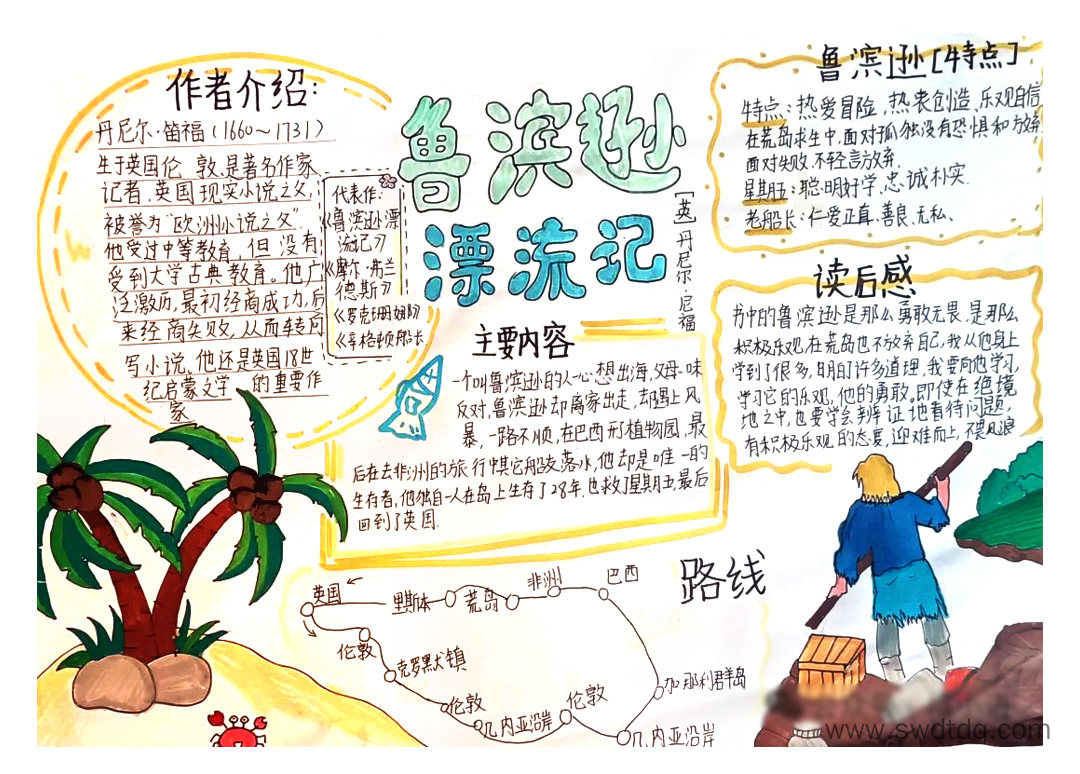 作者介绍:
丹尼尔·笛福(1660～1731)
生于英国伦 敦,是著名作家
记者.英国现实小说之父,
被誉为"欧洲小说之父"
他受过中等教育,但没有
受到大学古典教育。他广
泛激历,最初经商成功,后
来经商失败,从而转向
写小说、他还是英国18世
纪启蒙文学 的重要作
家
代表作:
《鲁滨逊漂
流记》
《摩尔·弗兰
德斯》
《罗克珊娜》
《辛格顿船长
鲁滨逊
漂流记
[英]丹尼尔·尼福
主要内容
一个叫鲁滨逊的人心想出海,父母一味
反对,鲁滨逊却离家出走,却遇上风
暴,一路不顺,在巴西形植物园,最
后在去非洲的旅行中其它船友落水,他却是唯一的
生存者,他独自一人在岛上生存了28年.也救了星期五,最后
回到了英国.
鲁滨逊[特点]
特点:热爱冒险,热衷创造、乐观自信
在荒岛求生中,面对孤独没有恐惧和放弃
面对失败,不轻言放弃.
星期五:聪明好学,忠诚朴实.
老船长:仁爱正直、善良、无私、
读后感
书中的鲁滨逊是那么勇敢无畏.是那么
积极乐观,在荒岛也不放弃自己,我从他身上
学到了很多,明白了许多道理,我要向他学习,
学习它的乐观,他的勇敢。即使在绝境
地之中,也要学会辨证地看待问题,
有积极乐观的态度,迎难而上,不畏风浪
路线
英国
里斯本
荒岛
非洲
巴西
伦敦
克罗默镇
伦敦
几内亚沿岸
伦敦
几内亚沿岸
加那利群岛
www.swdtdq.com